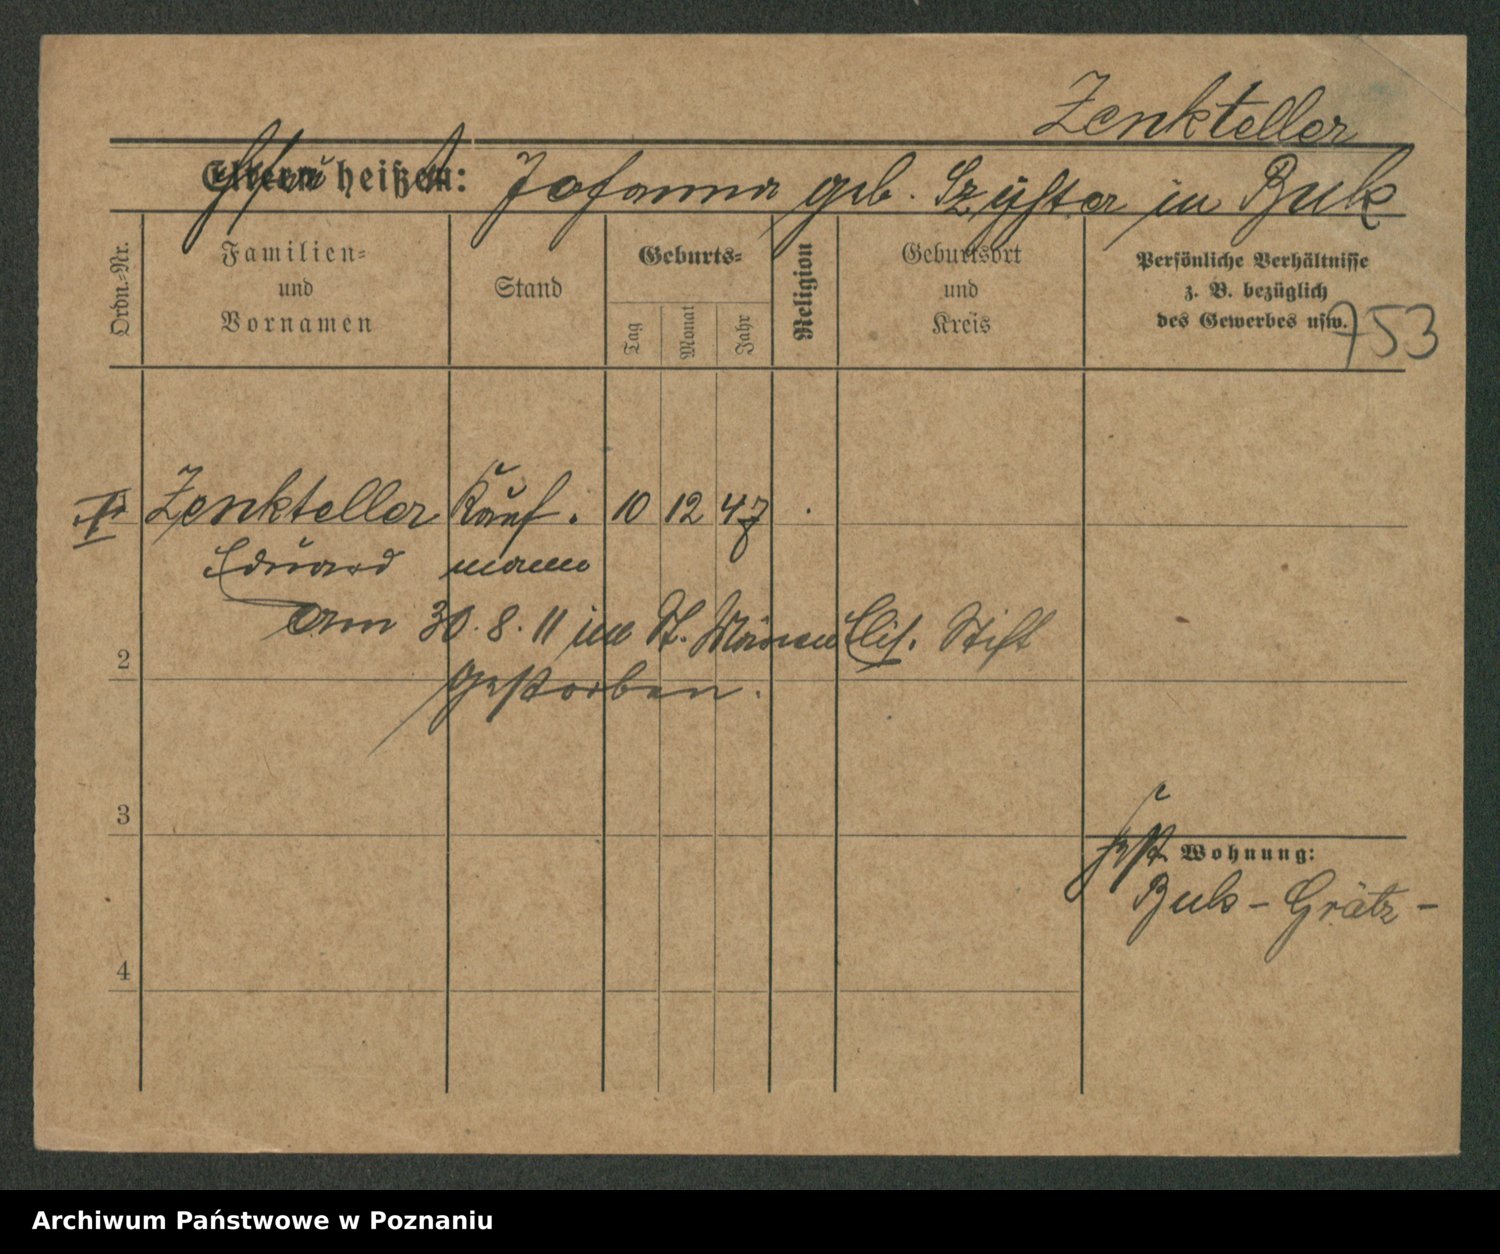 Zenkteller
Eltern heißen: Johanna geb. in Buk
Ordn.-Nr.
Familien-
und
Vornamen
Stand
Geburts-
Tag
Monat
Jahr
Religion
Geburtsort
und
Kreis
Persönliche Verhältnisse
z. B. bezüglich
des Gewerbes usw.
753
Zenkteller Kauf. 10 12 47
Eduard mann
am 30. 8. 11 im St. Elis. Stift
2
gestorben.
3
4
Wohnung:
Buk - Grätz -
Archiwum Państwowe w Poznaniu